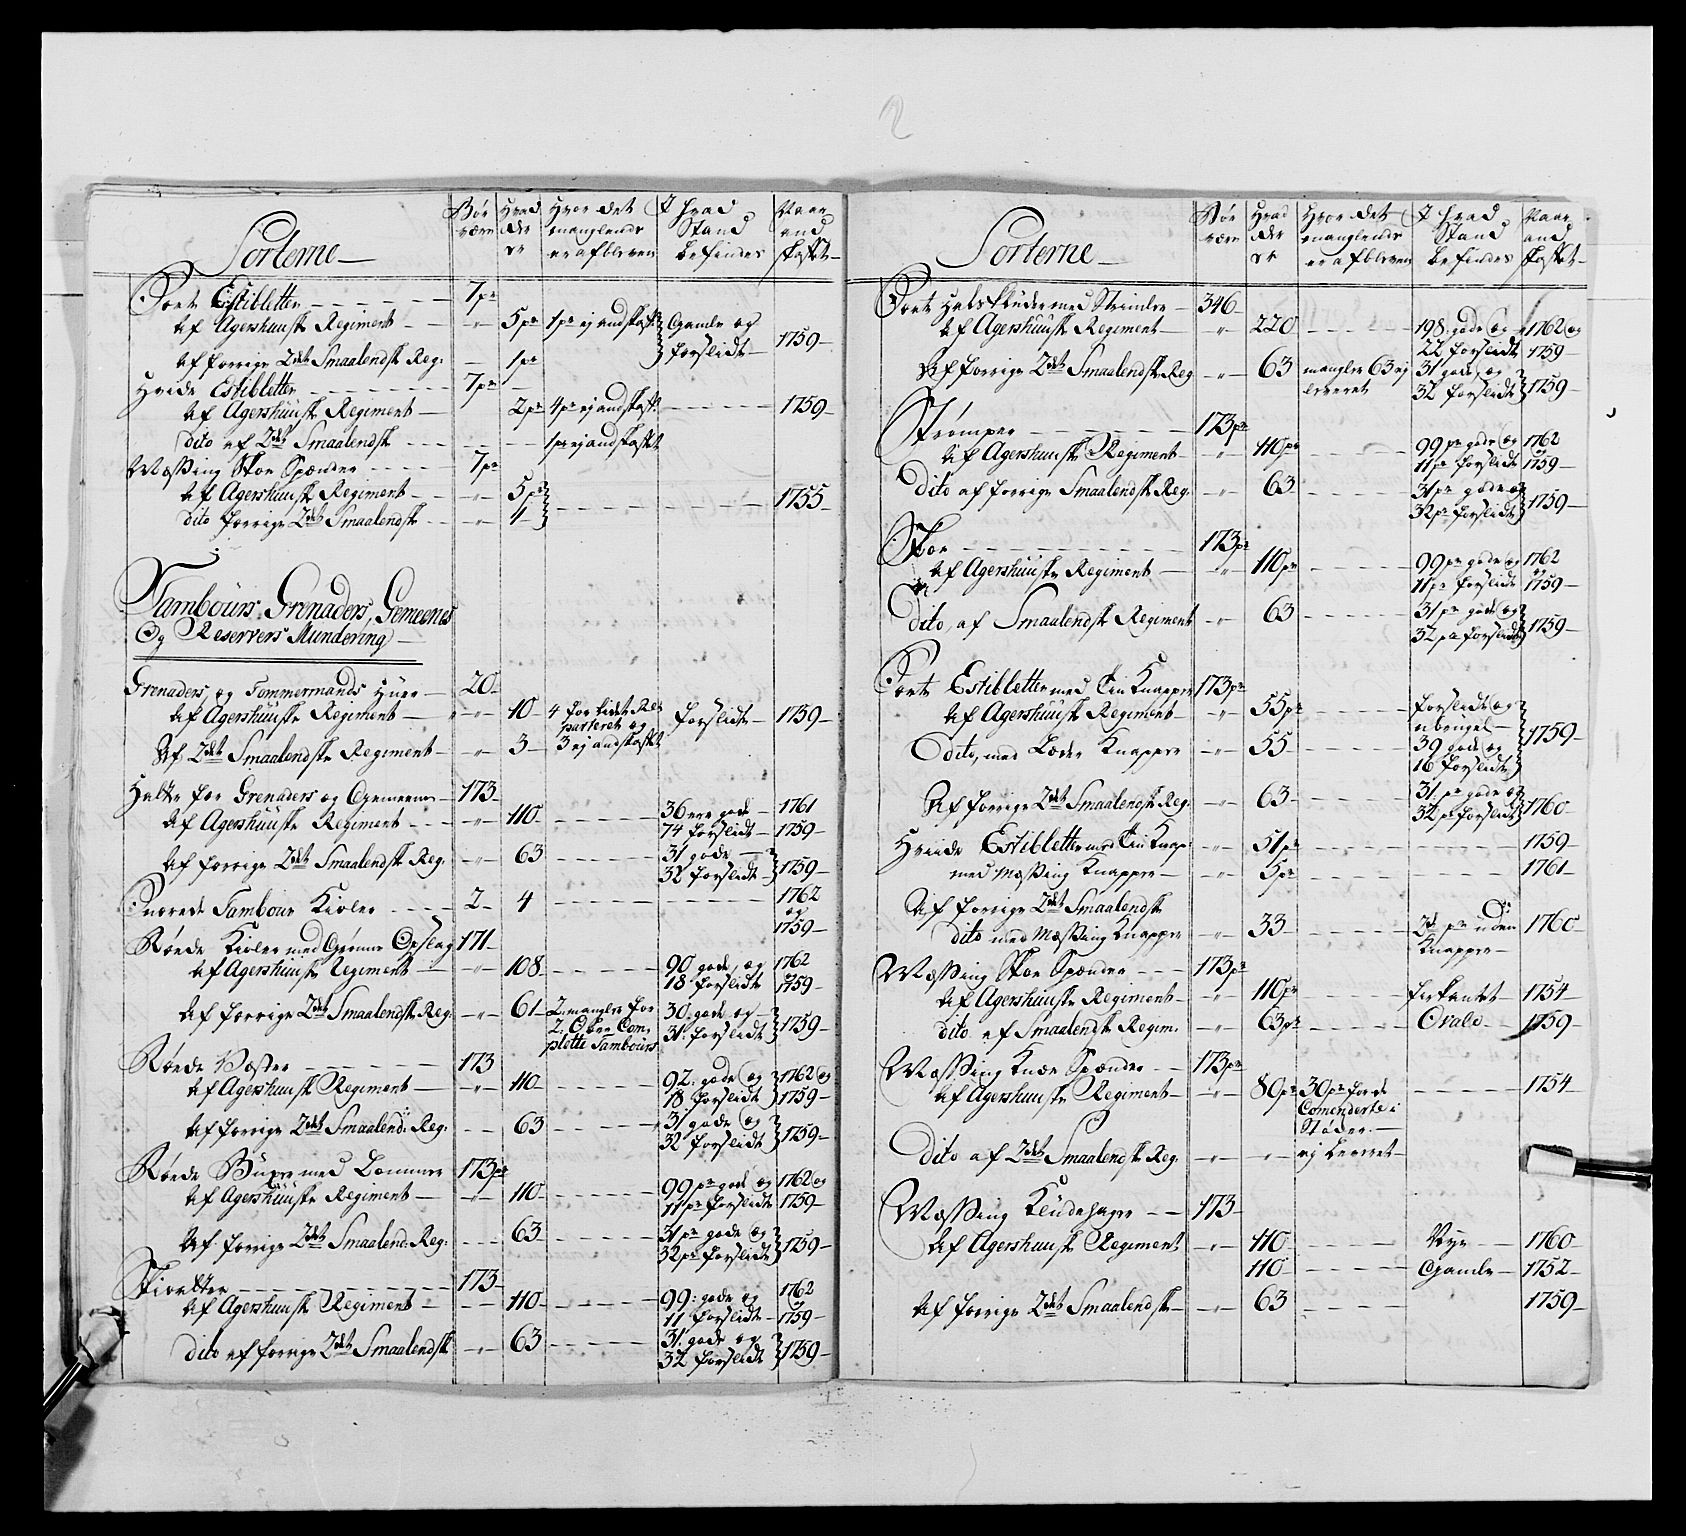 2
Sorterne — Bør være | Hvad der er | Hvor det manglende er afbleven | I hvad Stand befindes | Naar andskaffet
Sorte Estibletter — 7 pr
Af Agershuuske Regiment — " 5 pr 1 pr ej andskaft Gamle og forslidt — 1759
Af forrige 2det Smaalendsk Reg: — 1 pr
Hvide Estibletter — 7 pr
Af Agershuuske Regiment — 2 pr 4 pr ej andskaft — 1759
dito af 2det Smaalendsk — 1 pr ej andskaft
Messing Skoe Spænder — 7 pr
Af Agershuusk Regiment — " 5 pr
dito forrige 2det Smaalendsk — " 1 — 1755
Tambours, Grenaders, Gemeenes
Og Reservers Mundering —
Grenaders og Tømmermands Huer — 20
Af Agershuuske Regiment — " 10 4 forlidet Reparteret og forslidt — 1759
Af 2det Smaalendske Regiment — " 3 3 ej andskaft
Hatte for Grenaders og Gemeene — 173
Af Agershuuske Regiment — " 110 — 36 ere gode 1761
74 forslidt 1759
Af forrige 2det Smaalendsk Reg. — " 63 — 31 gode
32 forslidt 1759
Snorede Tambour Kioler — 2 4 — 1762 og 1759
Røede Kioler med Grønne Opslag 171
Af Agershuusk Regiment — " 108 — 90 gode og 1762 og
18 forslidt 1759
Af forrige 2det Smaalendsk Reg: — " 61 2 mangler for 2 Over Complette Tambours 30 gode og
31 forslidt 1759
Røede Vester — 173
Af Agershuusk Regiment — " 110 — 92 gode og 1762 og
18 forslidt 1759
Af forrige 2det Smaalend: Reg: — 63 — 31 gode og
32 forslidt 1759
Røede Buxer med Lommer 173 pr
Af Agershuusk Regiment — " 110 — 99 pr gode og 1762 og
11 pr forslidt 1759
Af forrige 2det Smaalend: Reg: — 63 — 31 pr gode og
32 pr forslidt 1759
Skiorter — 173
Af Agershuusk Regiment — 110 — 99 gode og 1762 og
11 forslidt 1759
dito af forrige 2det Smaalendsk — " 63 — 31 gode og
32 forslidt 1759
Sorterne — Bør være | Hvad der er | Hvor det manglende er afbleven | I hvad Stand befindes | Naar andskaffet
Sorte Halsklude med Strimler — 346
Af Agershuusk Regiment — " 220 — 198 gode og 1762 og
22 forslidt 1759
Af forrige 2det Smaalendsk Reg — " 63 mangler 63 ej leveret 31 gode og
32 forslidt 1759
Strømper — 173 pr
Af Agershuusk Regiment — " 110 pr — 99 pr gode og 1762 og
11 pr forslidt 1759
Dito af forrige Smaalendsk Reg. — " 63 — 31 pr gode og
32 pr forslidt 1759
Skoe — 173 pr
Af Agershuuske Regiment — " 110 pr — 99 pr gode og 1762 og
11 pr forslidt 1759
Dito, af Smaalendsk Regiment — " 63 — 31 pr gode og
32 pr forslidt 1759
Sorte Estibletter med Tin Knapper 173 pr
Af Agershuusk Regiment — " 55 pr — forslidt og ubrugel —
dito, med Læder Knapper — " 55 — 39 gode og
16 forslidt 1759
Af forrige 2det Smaalendsk Reg. — " 63 — 31 pr gode og
32 pr forslidt 1760
Hviide Estibletter med Tin Knap: — " 51 pr — 1759
med Messing Knapper — " 5 pr — 1761
Af forrige 2det Smaalendsk
dito med Messing Knapper — " 33 — pr uden Knapper — 1760
Messing Skoe Spænder — 173 pr
Af Agershuusk Regiment — " 110 pr — firkantet — 1754
dito af Smaalendsk Regim: — " 63 pr — Ovale — 1759
Messing Knæe Spænder — 173 pr
Af Agershuuske Regiment — " 80 pr 30 pr for de Comenderte i Støder — 1754
Dito af 2det Smaalendsk Reg. — " " ej leveret
Messing Kludehager — 173
Af Agershuusk Regiment — " 110 — Nye — 1760
110 — Gamle — 1752
Af forrige 2det Smaalendsk — " 63 — 1759